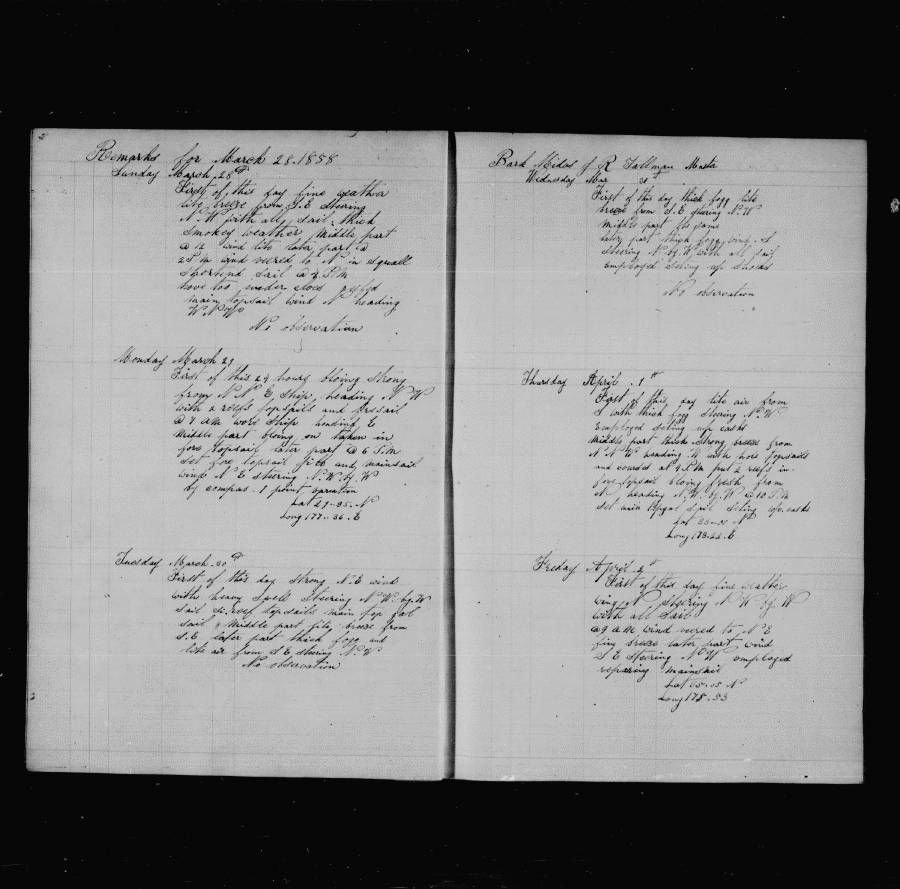 Remarks for March 28. 1858
Sunday March, 28th
First of this day fine weather
lite breze from S.E steering
N W with all sail, thick
smokey weather, Middle part
@ 12 wind lite later part @
2 P M wind vered to N in squalls
shortend sail @ 4 P.M
hove too under close
main topsail wind N heading
W N W
No observation
Monday March 29
First of this 24 hours bloing strong
from N N E Ship, heading N W
with 2 reefs topsails and
@ 7 A M wore Ship heading E
Middle part bloing on taken in
fore topsail later part @ 6 P.M
set fore topsail jibb and mainsail
wind N E steering N. W. by. W
by compas. 1 point variation
Lat 29-35. N
Long 177-36. E
Tuesday March. 30th
First of this day strong N. E wind
with heavy Steering N W. by. W
sail topsails main top gal
sail, Middle part breze from
S. E later part thick fogg and
lite air from S E steering N. W
No observation
Bark Midas of R Tallman Master
Wednesday Mar 31
First of this day thick fogg lite
breze from S. E stering N. W
Middle part the same
later part thick fogg, wind. S
steering N by. W with all sail
employed seting up shooks
No observation
Thursday April. 1st
First of this, day lite air from
S with thick fogg Steering N. W
Employed seting up casks
Middle part thick strong breze from
N N W heading W with hole topsails
and courses at 4 P.M put 2 reefs in
fore topsail bloing fresh from
N heading N. W. by. W @ 10 P M
set main topgal sail seting up casks
Lat 33- N
Long 178-22. E
Freday April. 2nd
First of this day fine weather
wind N stering N W by. W
with all sail
@ 9 A M wind vered to N E
fine breze later part wind
S E steering N W employed
reparing mainsail
Lat N
Long 178-53